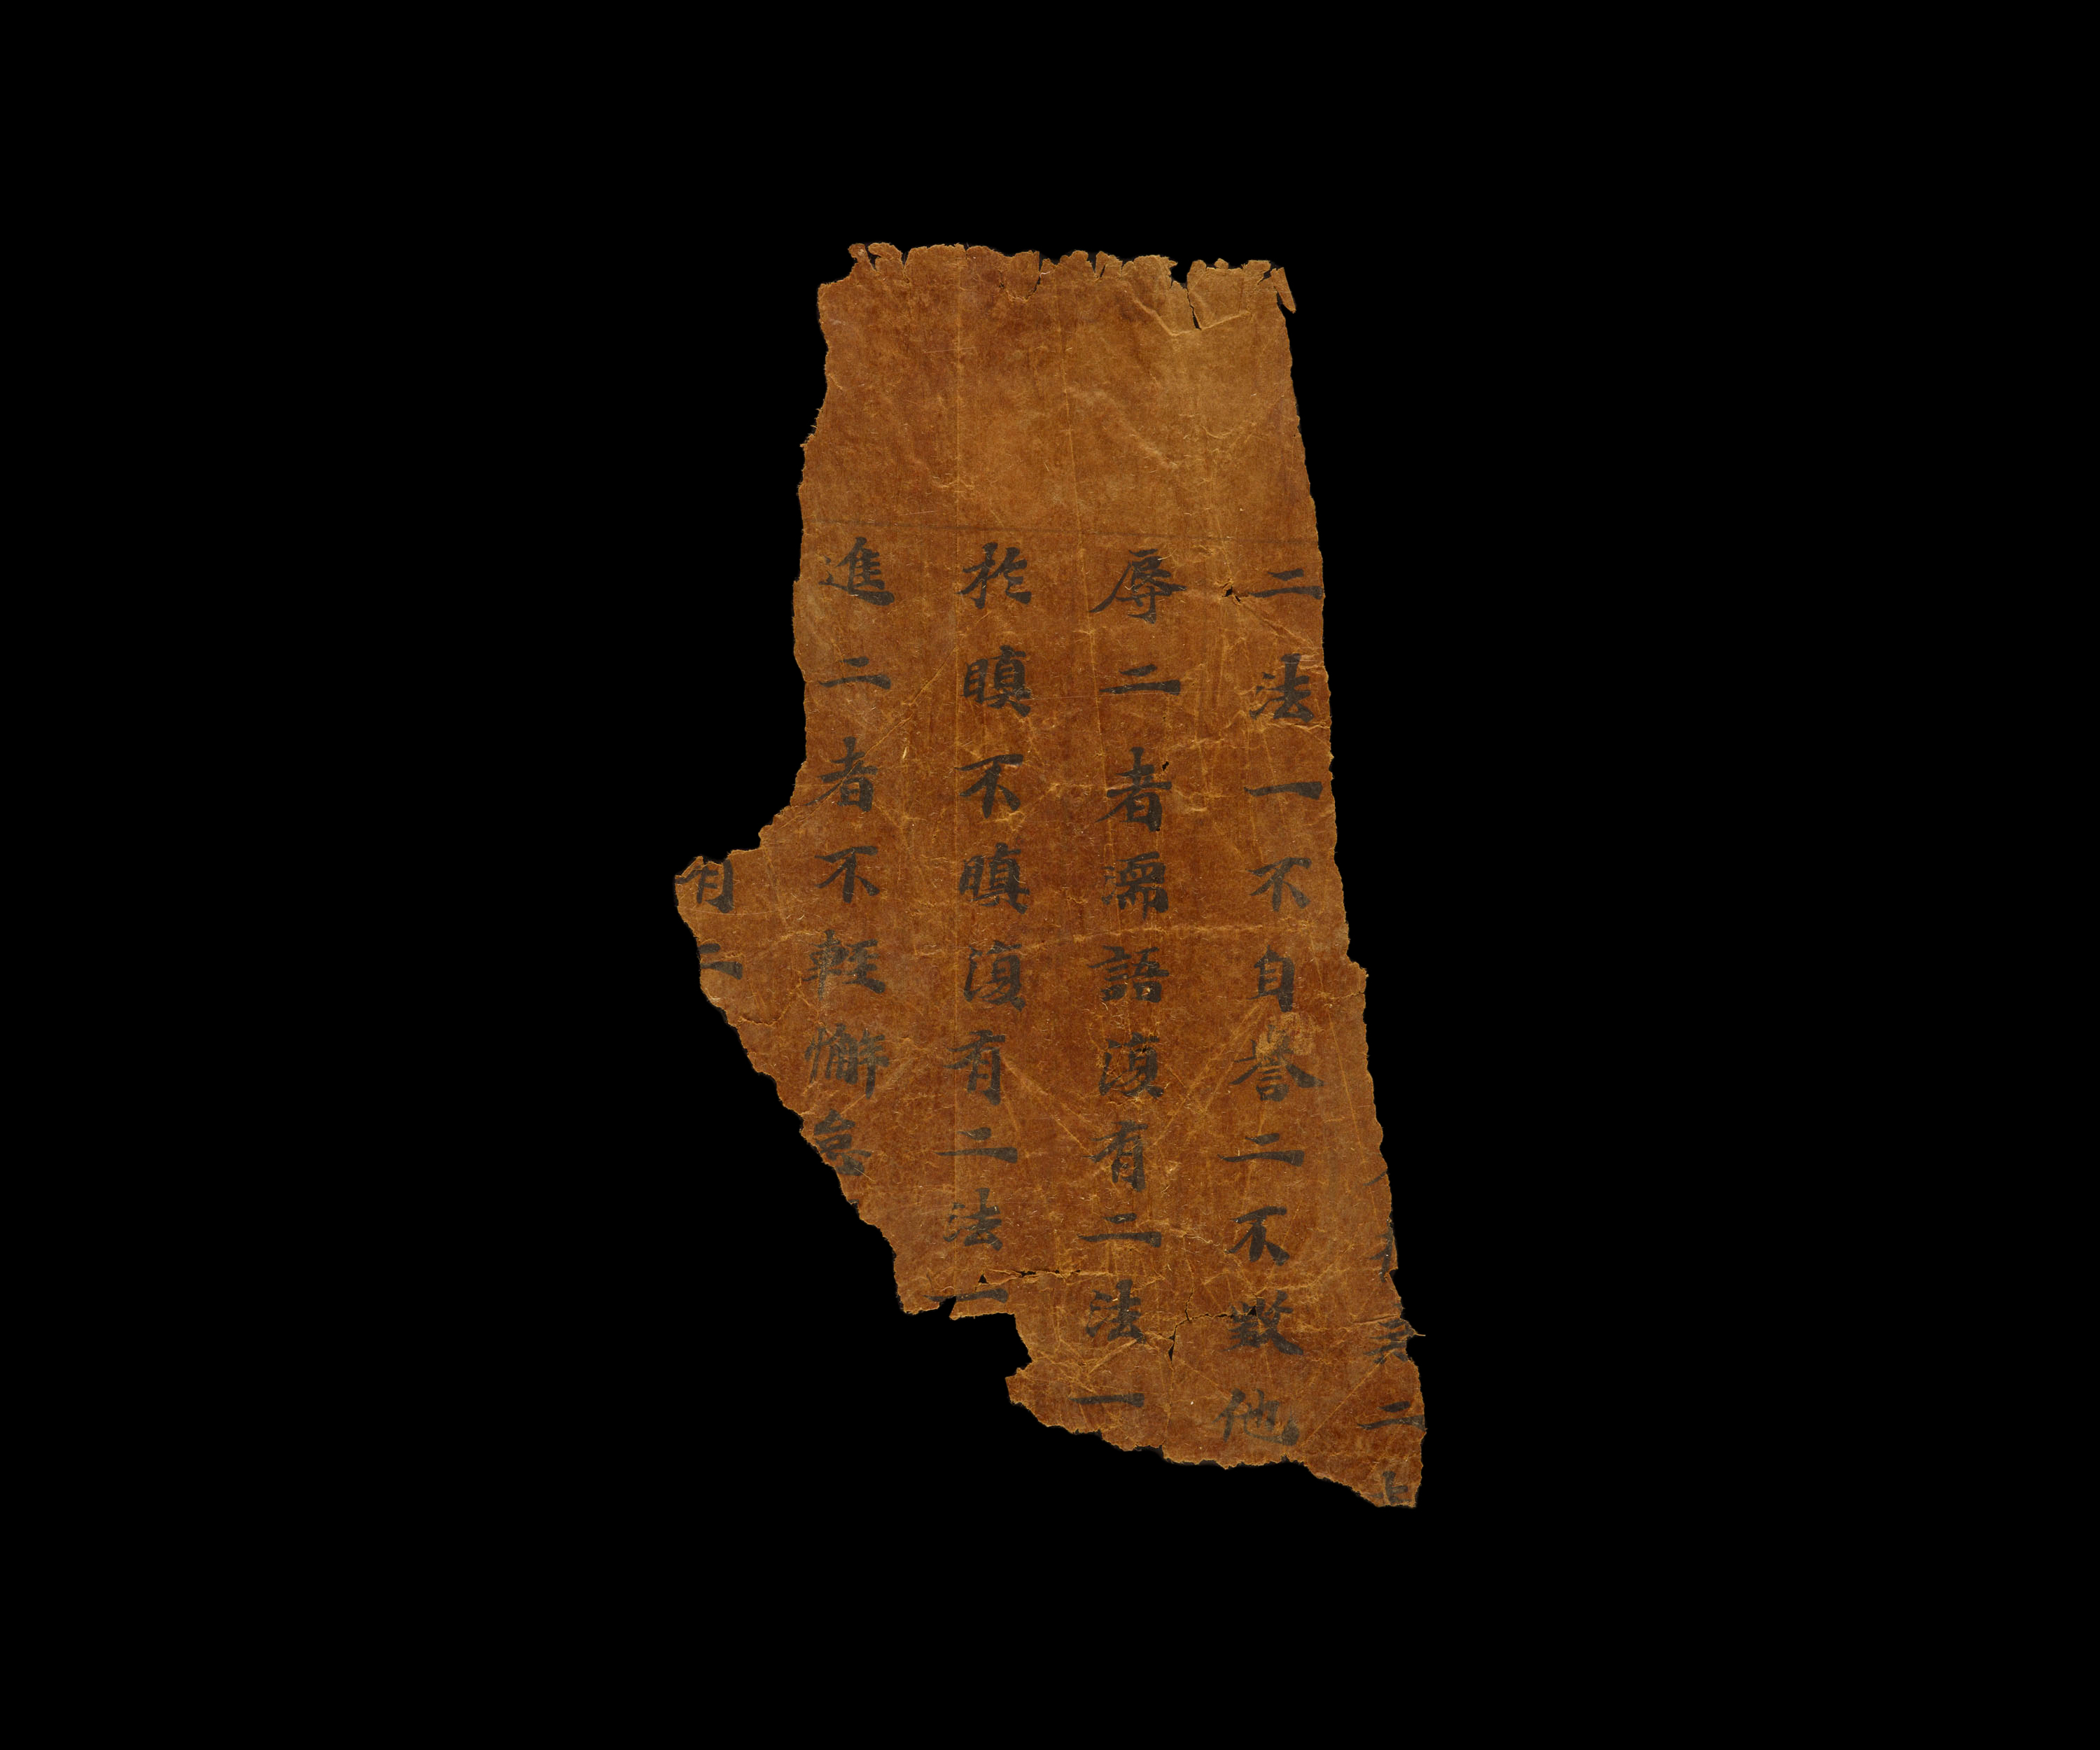 二
二法一不自譽二不毀他
辱二者濡語復有二法一
於瞋不瞋復有二法一
進二者不輕懈怠
有二